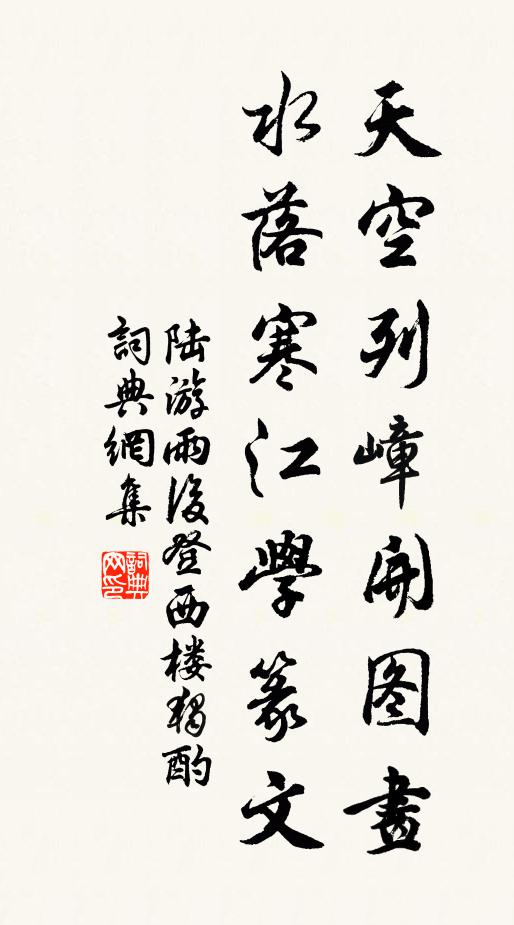 天空列嶂開图畫
水落寒江學篆文
陆游雨後登西楼獨酌
詞典網集
詞典網印